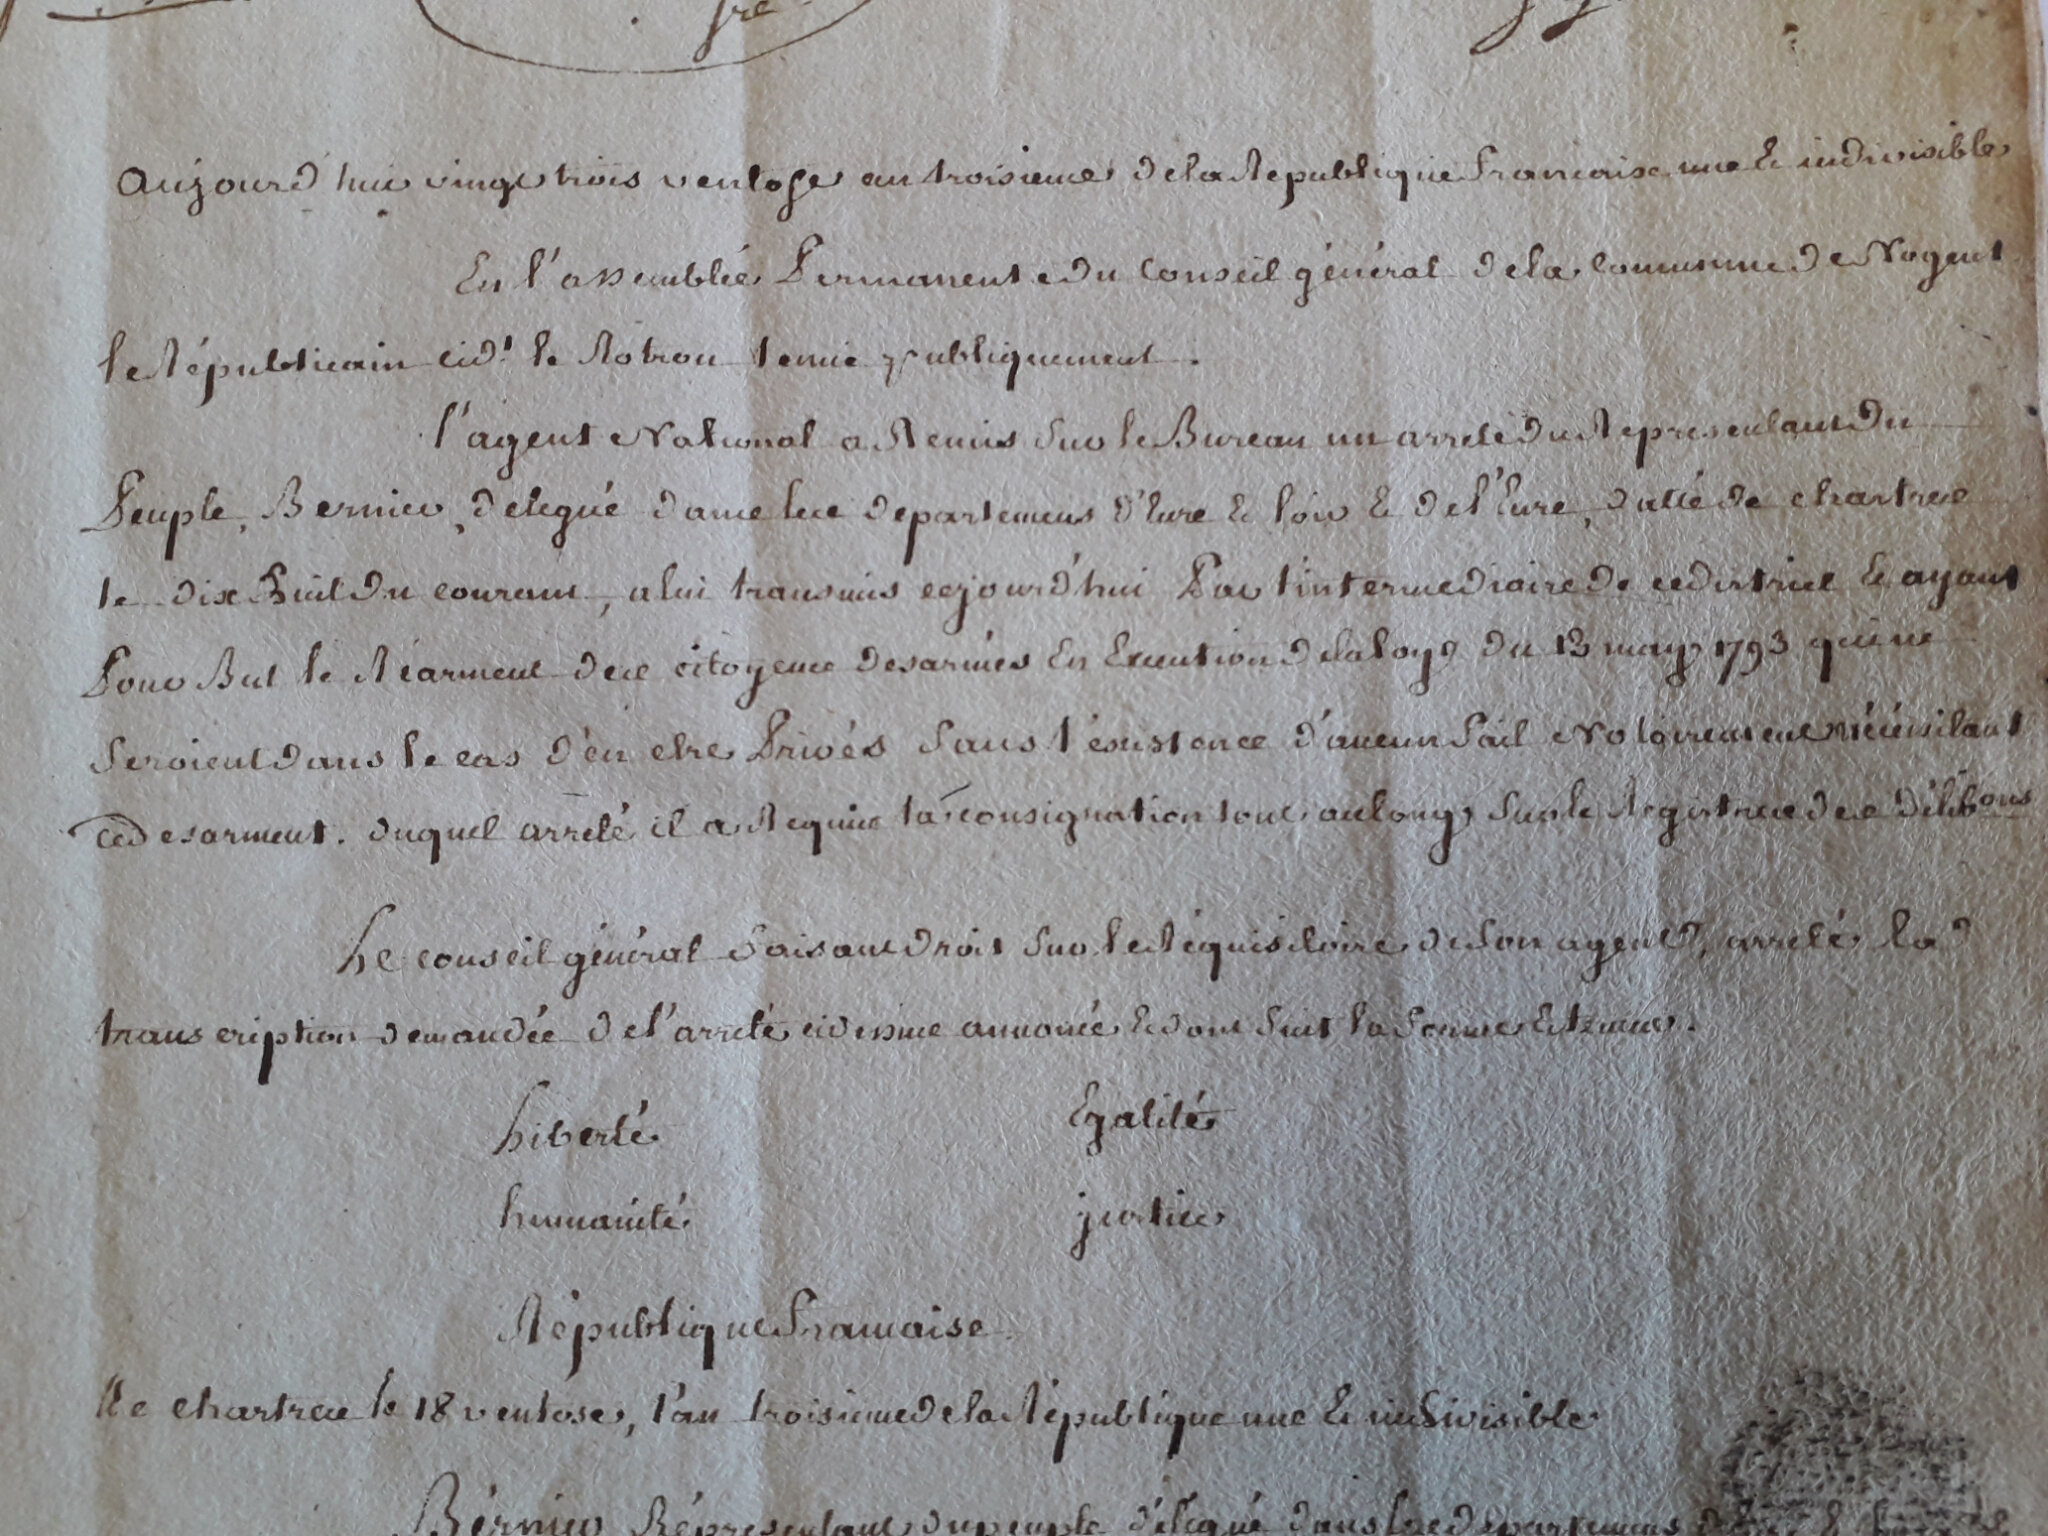 fre
Aujourd'hui vingt trois ventose an troisieme de la Republique francaise une & indivisible
En l'assemblée Permanente du Conseil général de la Commune de Nogent
le Républicain cid.t le Rotrou tenue publiquement.
l'agent National a Remis sur le Bureau un arreté du Representant du
Peuple, Bernier, delegué dans les departemens d'Eure & loir & de l'Eure, datté de chartres
le dix huit du courant, a lui transmis cejourd'hui Par l'intermediaire de ce district & ayant
Pour But le Réarment des citoyens desarmés En Execution de la loy du 13 may 1793 qui ne
seroient dans le cas d'en etre Privés sans l'existence d'aucun fait Notoirement nécéssitant
ce desarment. duquel arreté il a Requis la consignation tout au long sur le Registre des délibons
Le conseil général faisant droit sur le Réquisitoire de son agent, arreté la
transcription demandée de l'arreté cidessus annoncé & dont suit la forme & teneur.
Liberté Egalité
humanité justice
République francaise
De chartres le 18 ventose, l'an troisieme de la République une & indivisible
Bérnier Répresentant du peuple délégué dans les departemens